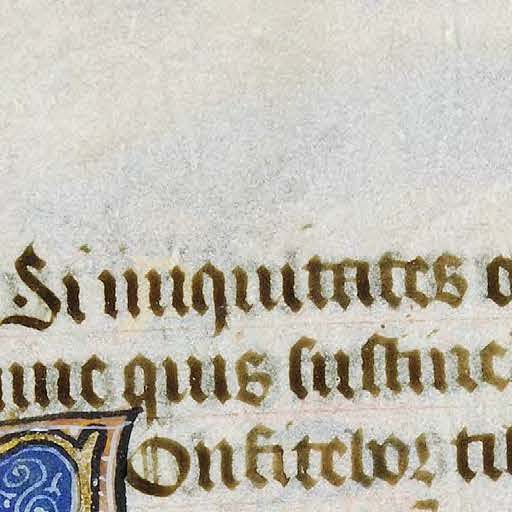 Si iniquitates o
mine quis sustine
Onfitebor tib